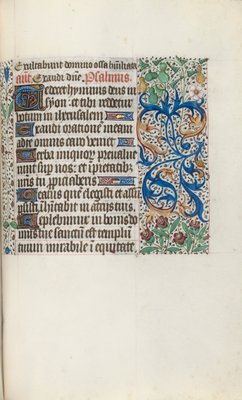 Exultabunt domino ossa humiliata
ant. Exaudi dñe. Psalmus.
Te decet hymnus deus in
syon: et tibi reddetur
votum in iherusalem
Exaudi orationē meam
ad te omnis caro veniet
Verba iniquor͛ prevalue
runt sup nos: et ipietatib
nr̄is tu ppiciaberis
Beatus quē elegisti et assū
psisti īhabitabit in atrijs tuis.
Replebimur in bonis do
mus tue sanctū est templū
tuum mirabile ī equitate.